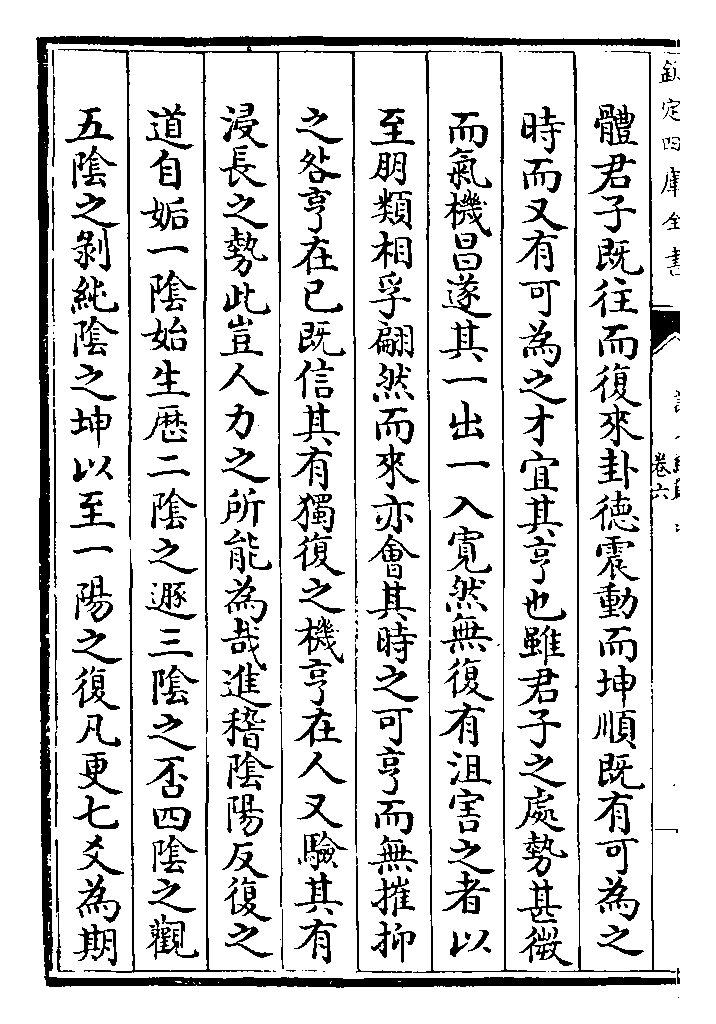 欽定四庫全書
卷六
體君子既往而復來卦德震動而坤順既有可為之
時而又有可為之才宜其亨也雖君子之處勢甚微
而氣機昌遂其一出一入寛然無復有沮害之者以
至朋類相孚翩然而來亦會其時之可亨而無摧抑
之咎亨在已既信其有獨復之機亨在人又驗其有
浸長之勢此豈人力之所能為哉進稽陰陽反復之
道自姤一陰始生厯二陰之遯三陰之否四陰之觀
五陰之剝純陰之坤以至一陽之復凡更七爻為期